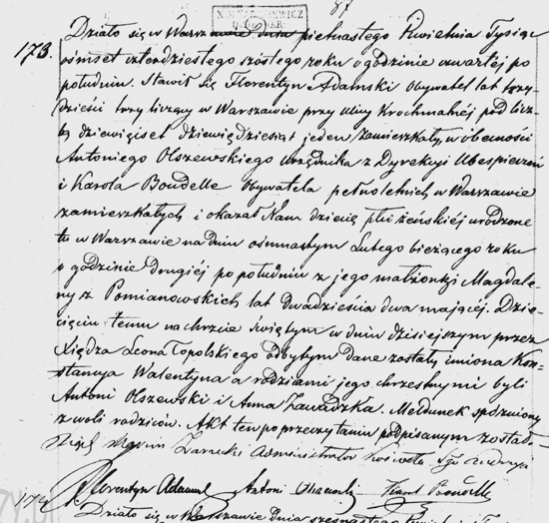 87
173. Działo się w Warszawie dnia piętnastego Kwietnia Tysiąc
ośmset czterdziestego szóstego roku o godzinie czwartej po
południu. Stawił się Florentyn Adamski Obywatel lat trzy-
dzieści trzy liczący w Warszawie przy ulicy Krochmalnéj pod licz-
bą dziewięćset dziewięćdziesiąt jeden zamieszkały, w obecności
Antoniego Olszewskiego urzędnika z Dyrekcyi Ubespieczeń
i Karola Boudelle Obywatela pełnoletnich w Warszawie
zamieszkałych i okazał Nam dziecię płci żeńskiéj urodzone
tu w Warszawie na dniu ośmnastym Lutego bieżącego roku
o godzinie drugiéj po południu z jego małżonki Magdale-
ny z Pomianowskich lat dwadzieścia dwa mającej. Dzie-
cięciu temu na chrzcie świętym w dniu dzisiejszym przez
Xiędza Leona Topolskiego odbytym dane zostały imiona Kon-
stancya Walentyna a rodzicami jego chrzestnymi byli
Antoni Olszewski i Anna Zawadzka. Meldunek spóźniony
z woli rodziców. Akt ten po przeczytaniu podpisanym został
Administrator Kościoła
Florentyn Adamsk Antoni Olszewski Karol Boudelle
174. Działo się w Warszawie dnia szesnastego